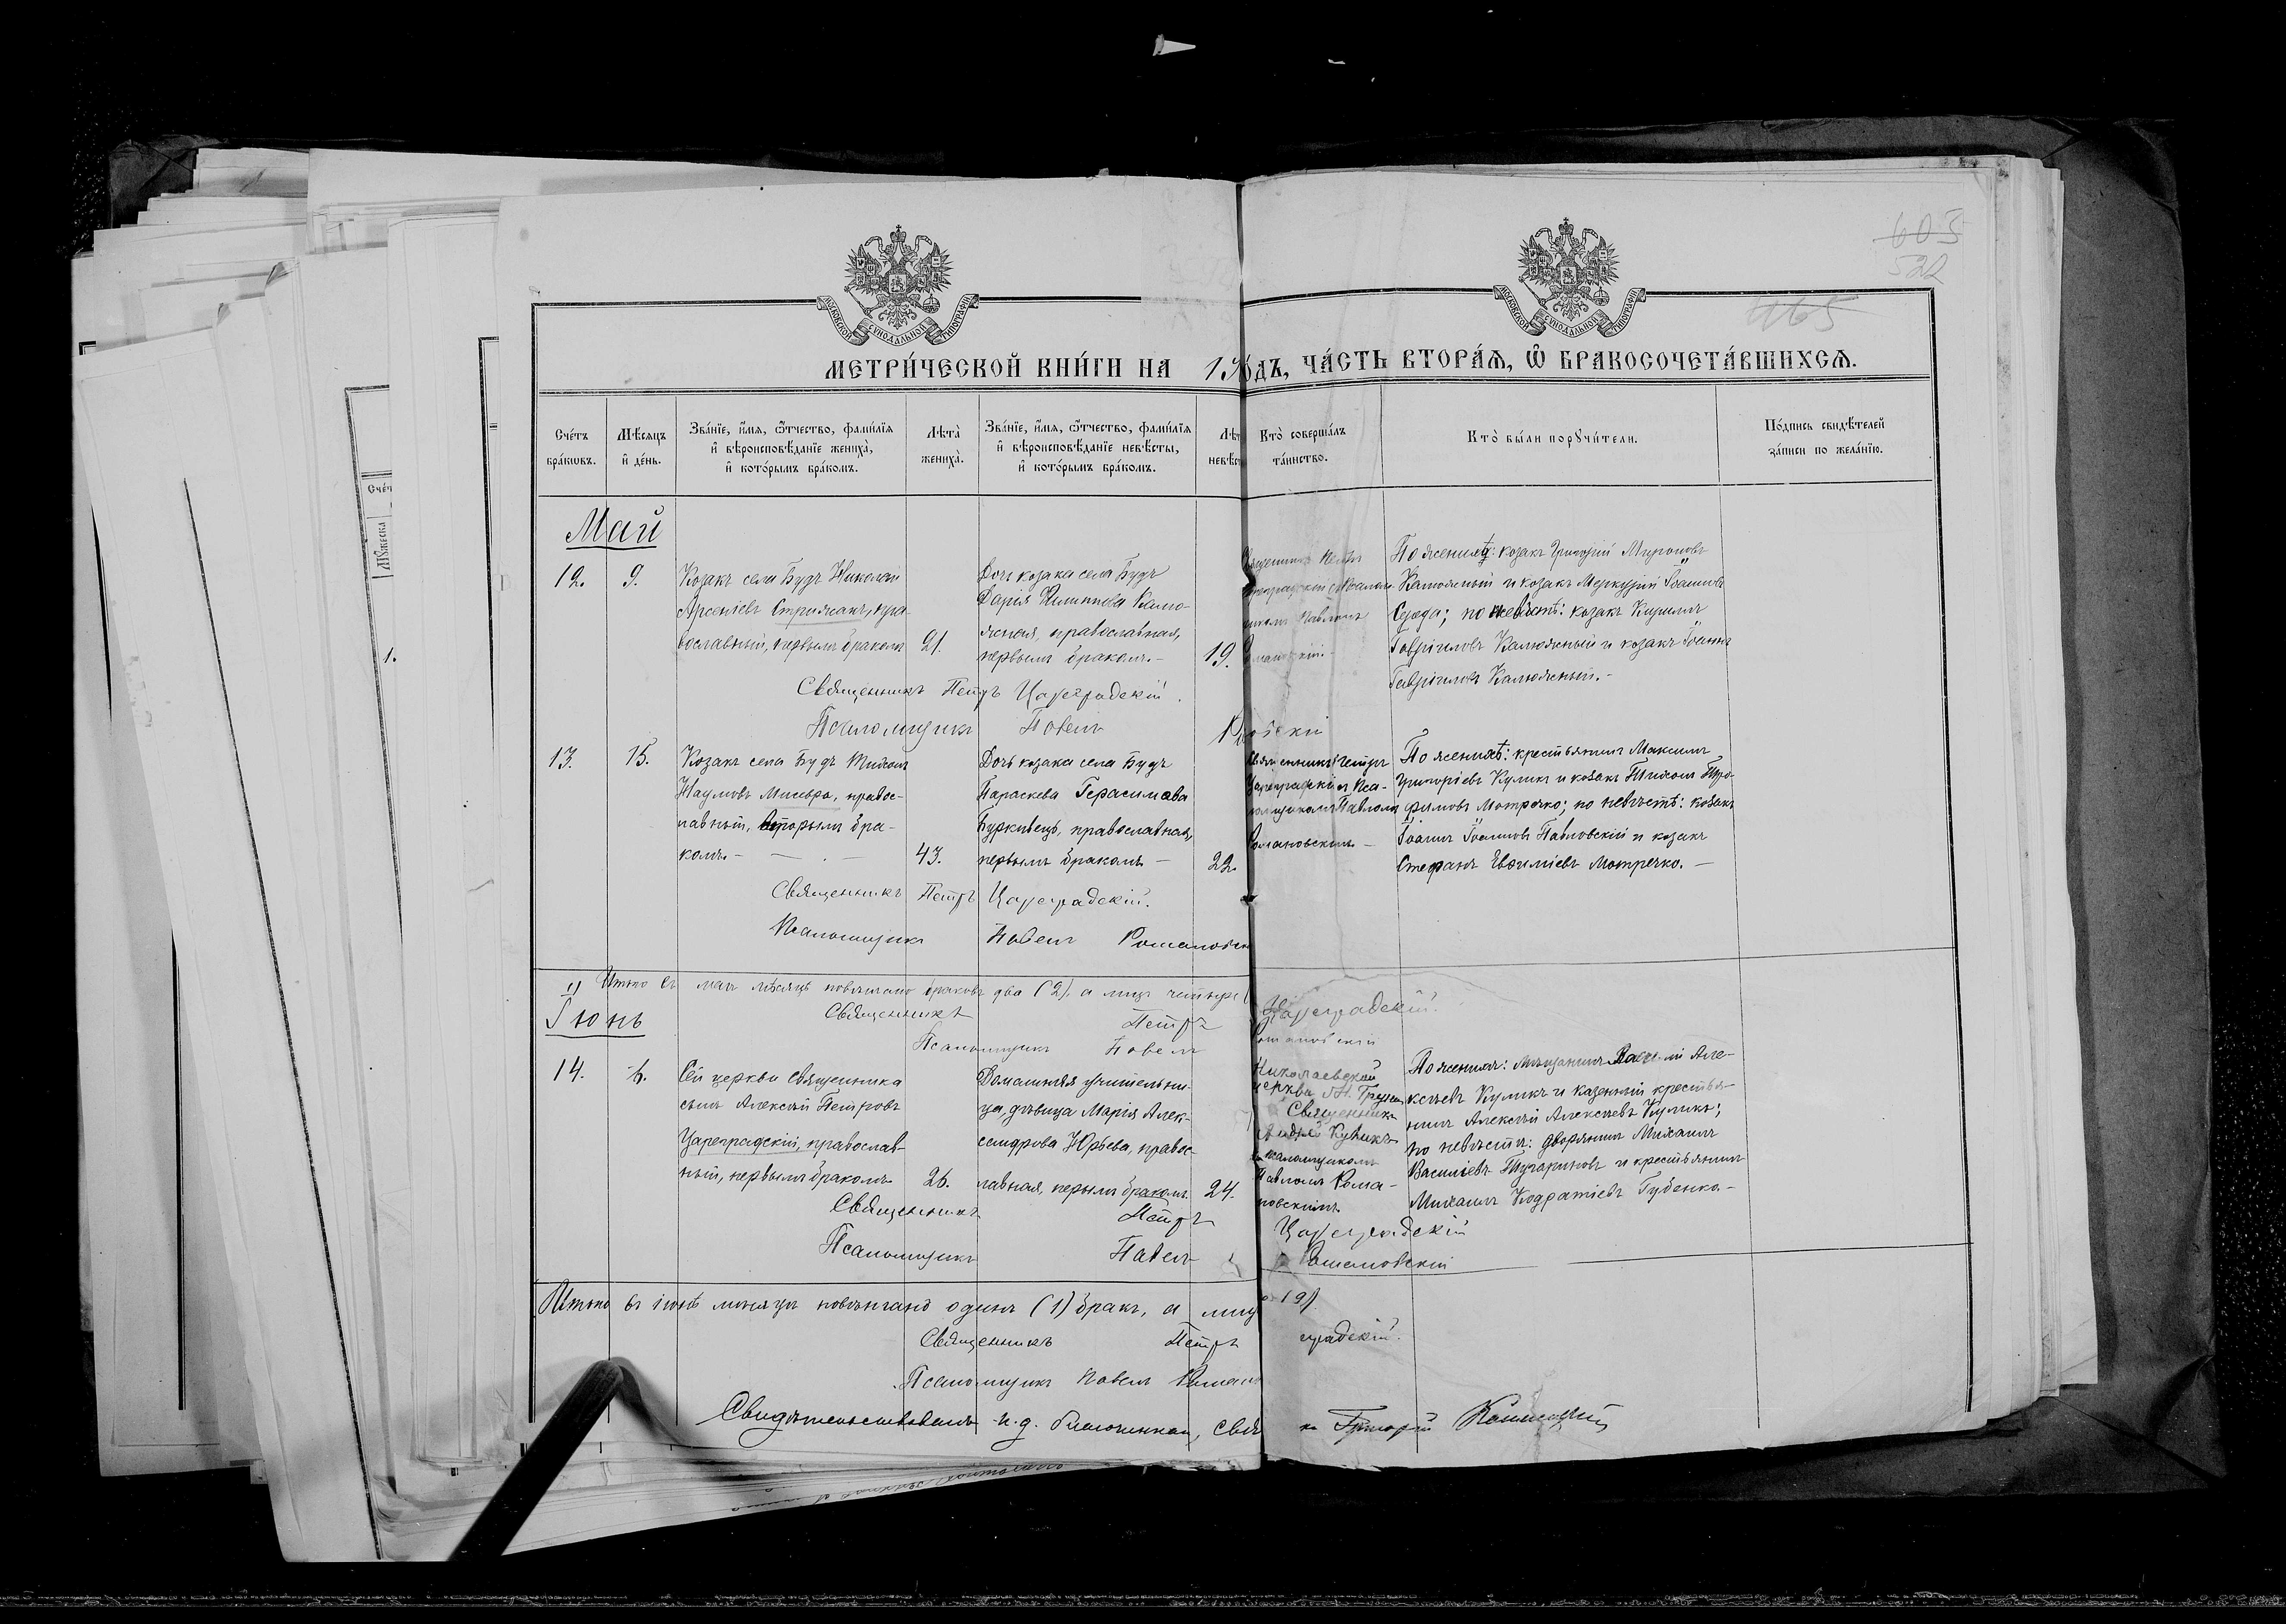 603
522
465
МОСКОВСКОЙ СѴНОДАЛЬНОЙ ТИПОГРАФІИ
МОСКОВСКОЙ СѴНОДАЛЬНОЙ ТИПОГРАФІИ
МЕТРИ́ЧЕСКОЙ КНИ́ГИ НА 19 ДЪ, ЧА́СТЬ ВТОРА́Я, Ѡ҆ БРАКОСОЧЕТА́ВШИХСѦ.
Сче́тъ
бра́кѡвъ.
Мѣ́сѧцъ
и҆ де́нь.
Зва́нїе, и҆́мѧ, ѻ҆́тчество, фами́лїѧ
и҆ вѣроисповѣ́данїе жениха̀,
и҆ кото́рымъ бра́комъ.
Лѣта̀
жениха̀.
Зва́нїе, и҆́мѧ, ѻ҆́тчество, фами́лїѧ
и҆ вѣроисповѣ́данїе невѣ́сты,
и҆ кото́рымъ бра́комъ.
Лѣт
невѣс
Кто̀ соверша́лъ
та́инство.
Кто̀ бы́ли порꙋчи́тели.
По́дпись свидѣ́телей
за́писи по жела́нїю.
Май
12.
9.
Козакъ села Будъ Николай
Арсеніевъ Стрижакъ, пра-
вославный, первымъ бракомъ
21.
Дочь козака села Будъ
Дарія Филиппова Калю-
жная, православная,
первымъ бракомъ.-
19.
Павломъ
По женихѣ: козакъ Григорій Мироновъ
Калюжный и козакъ Меркурій Іоанновъ
Середа; по невѣстѣ: козакъ Кириллъ
Гавріиловъ Калюжный и козакъ Іоаннъ
Гавріиловъ Калюжный.-
Священникъ Петръ Цареградскій.
Псаломщикъ Павелъ
13.
15.
Козакъ села Будъ Тихонъ
Наумовъ правос-
лавный, вторымъ бра-
комъ.-
43.
Дочь козака села Будъ
Параскева Герасимова
Буркивець, православная,
первымъ бракомъ -
22.
Священникъ Петръ
Цареградскій съ Пса-
ломщикомъ Павломъ
Романовскимъ.-
По женихѣ: крестьянинъ Максимъ
Григоріевъ Куликъ и козакъ Тихонъ Тро-
фимовъ Мотречко; по невѣстѣ: козакъ
Іоаннъ Іоанновъ Павловскій и козакъ
Стефанъ Евфиміевъ Мотречко.-
Священникъ Петръ Цареградскій.
Псаломщикъ Павелъ Романовск
Итого въ маѣ мѣсяцѣ повѣнчано браковъ два (2), а лицъ четыре (
Священникъ Петръ Цареградскій.
Псаломщикъ Павелъ Романовскій
Іюнь
14.
6.
Сей церкви священника
сынъ Алексѣй Петровъ
Цареградскій, православ-
ный, первымъ бракомъ
26.
Домашняя учительни-
ца, дѣвица Марія Алек-
сандрова Юрьева, правос-
лавная, первымъ бракомъ.
24.
Николаевской
церкви
Священникъ
Андрей Куликъ
псаломщикомъ
Павломъ Рома-
новскимъ.
По женихѣ: мѣщанинъ Василій Але-
ксѣевъ Куликъ и казенный крестья-
нинъ Алексѣй Алексѣевъ Куликъ;
по невѣстѣ: дворянинъ Михаилъ
Василіевъ Тугариновъ и крестьянинъ
Михаилъ Кодратіевъ Губенко.-
Священникъ Петръ Цареградскій
Псаломщикъ Павелъ Романовскій
Итого въ іюнѣ мѣсяцѣ повѣнчано одинъ (1) бракъ, а лиц
Священникъ Петръ градскій.
Псаломщикъ Павелъ Романо
Свидѣтельствовалъ и.д. благочиннаго, Свя къ Григорій
Счет
Мꙋжеска
1.